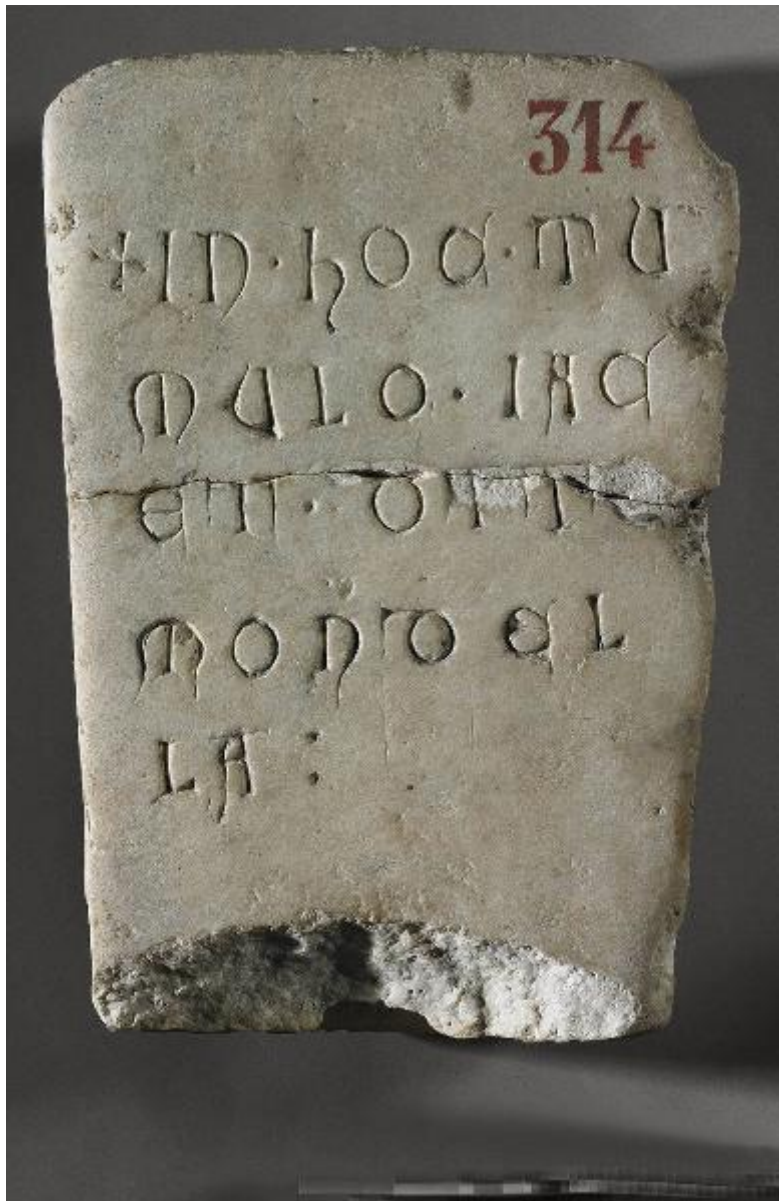 314
+IN·HOC·TU
MULO·IAC
ET·
MONDEL
LA: